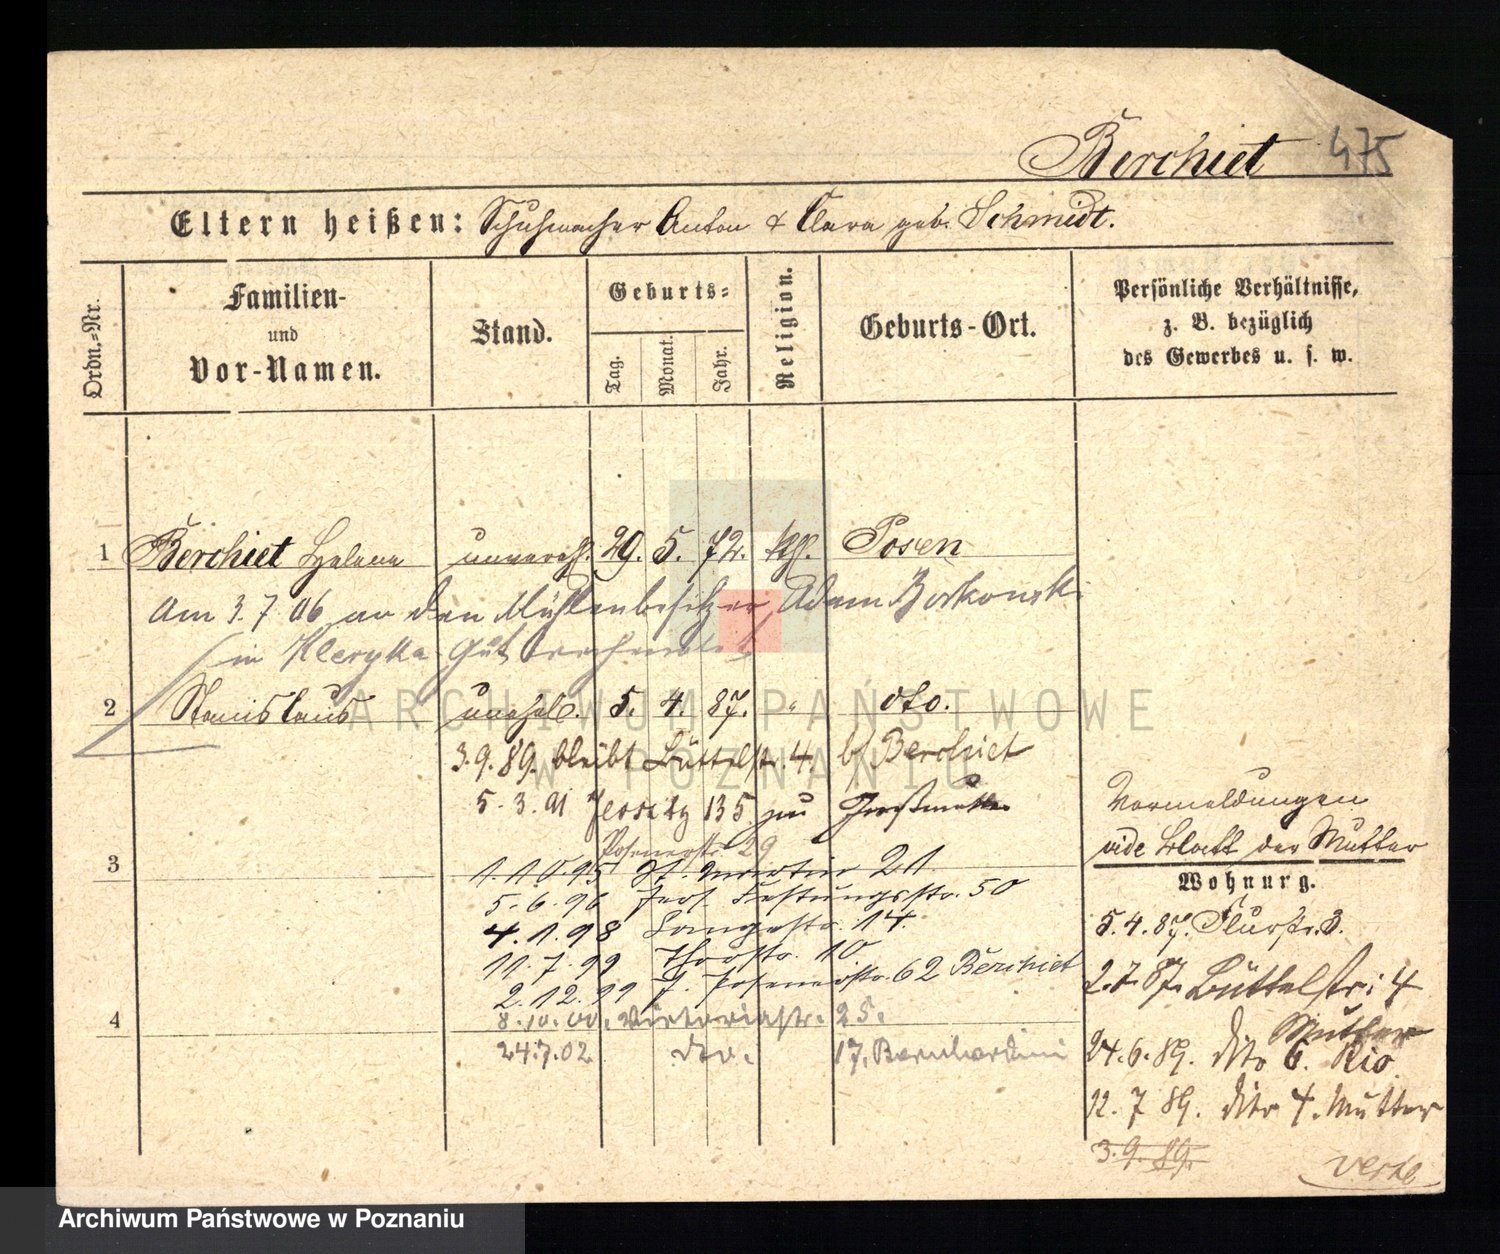 Berchiet 475
Eltern heißen: Schuhmacher Anton & Clara geb. Schmidt.
Ordn.-Nr.
Familien-
und
Vor-Namen.
Stand.
Geburts-
Tag.
Monat.
Jahr.
Religion.
Geburts-Ort.
Persönliche Verhältnisse,
z. B. bezüglich
des Gewerbes u. s. w.
1 Berchiet Helene unverehl. 29. 5. 72. kth. Posen
Am 3.7.06 an den Mühlenbesitzer Adam
in Gut
2 Stanislaus unehel. 5. 4. 87. " dto.
3.9.89. bleibt Büttelstr. 4. b/ Berchiet
5.3.91 Jersitz 135 zur Großmutter
Posenerstr. 29
3
1.10.95 St. Martin 21
5.6.96 Jers. Festungsstr. 50
4.1.98 Langestr. 14.
11.7.99 Thorstr. 10.
2.12.99 J. Posenerstr. 62 Berchiet
4
8.10.00. Victoriastr. 25.
24.7.02 dto. 17, Bernhardini
Vormeldungen
vide Blatt der Mutter
Wohnung.
5.4.87. Flurstr. 3.
2.7.87. Büttelstr: 4
Mutter
24.6.89. dito 6. Rio
12.7 89. dito 4. Mutter
3.9.89.
ARCHIWUM PAŃSTWOWE
W POZNANIU
Archiwum Państwowe w Poznaniu